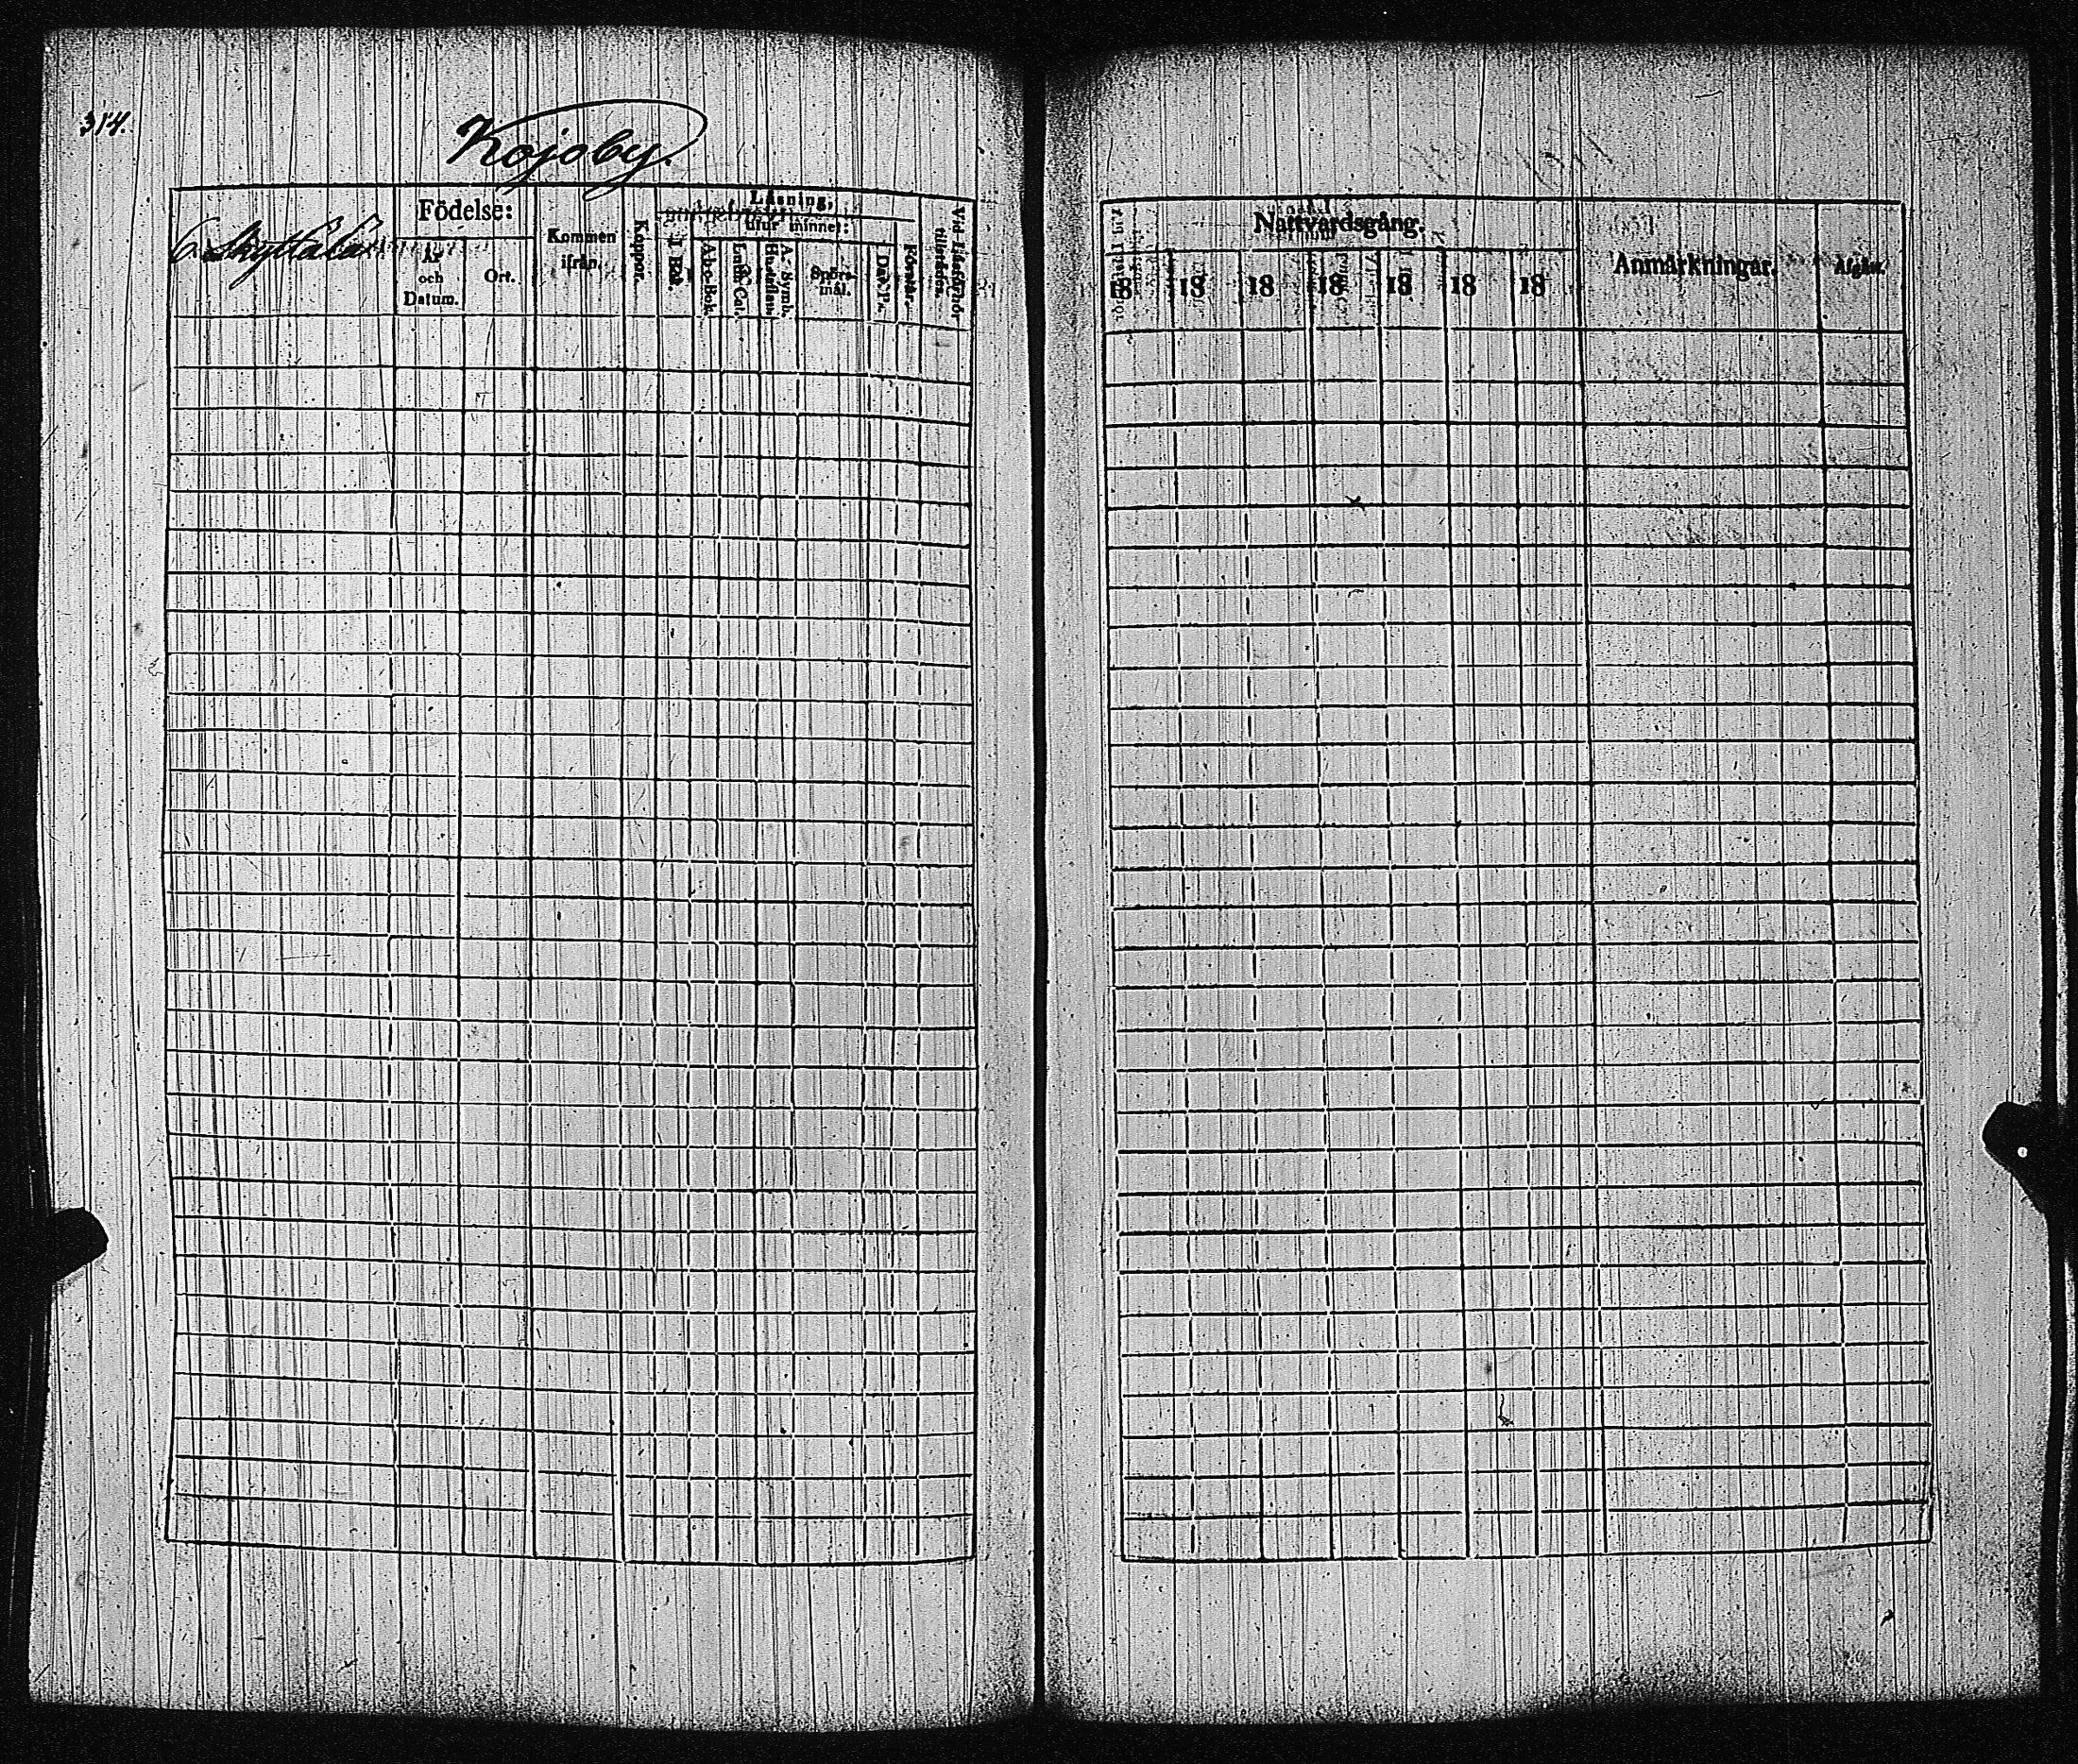 314.
Kojoby.
Födelse:
År
och
Datum.
Ort.
Kommen
ifrån.
Koppor.
Läsning,
utur minnet:
I Bok.
A-b-c-Bok.
Luth. Cat.
Hustaflan.
A. Symb.
Spörs-
mål.
Dav. Ps.
Vid Läseförhör
tillstädes.
Nattvardsgång.
18 18 18 18 18 18 18
Anmärkningar.
Afgått.